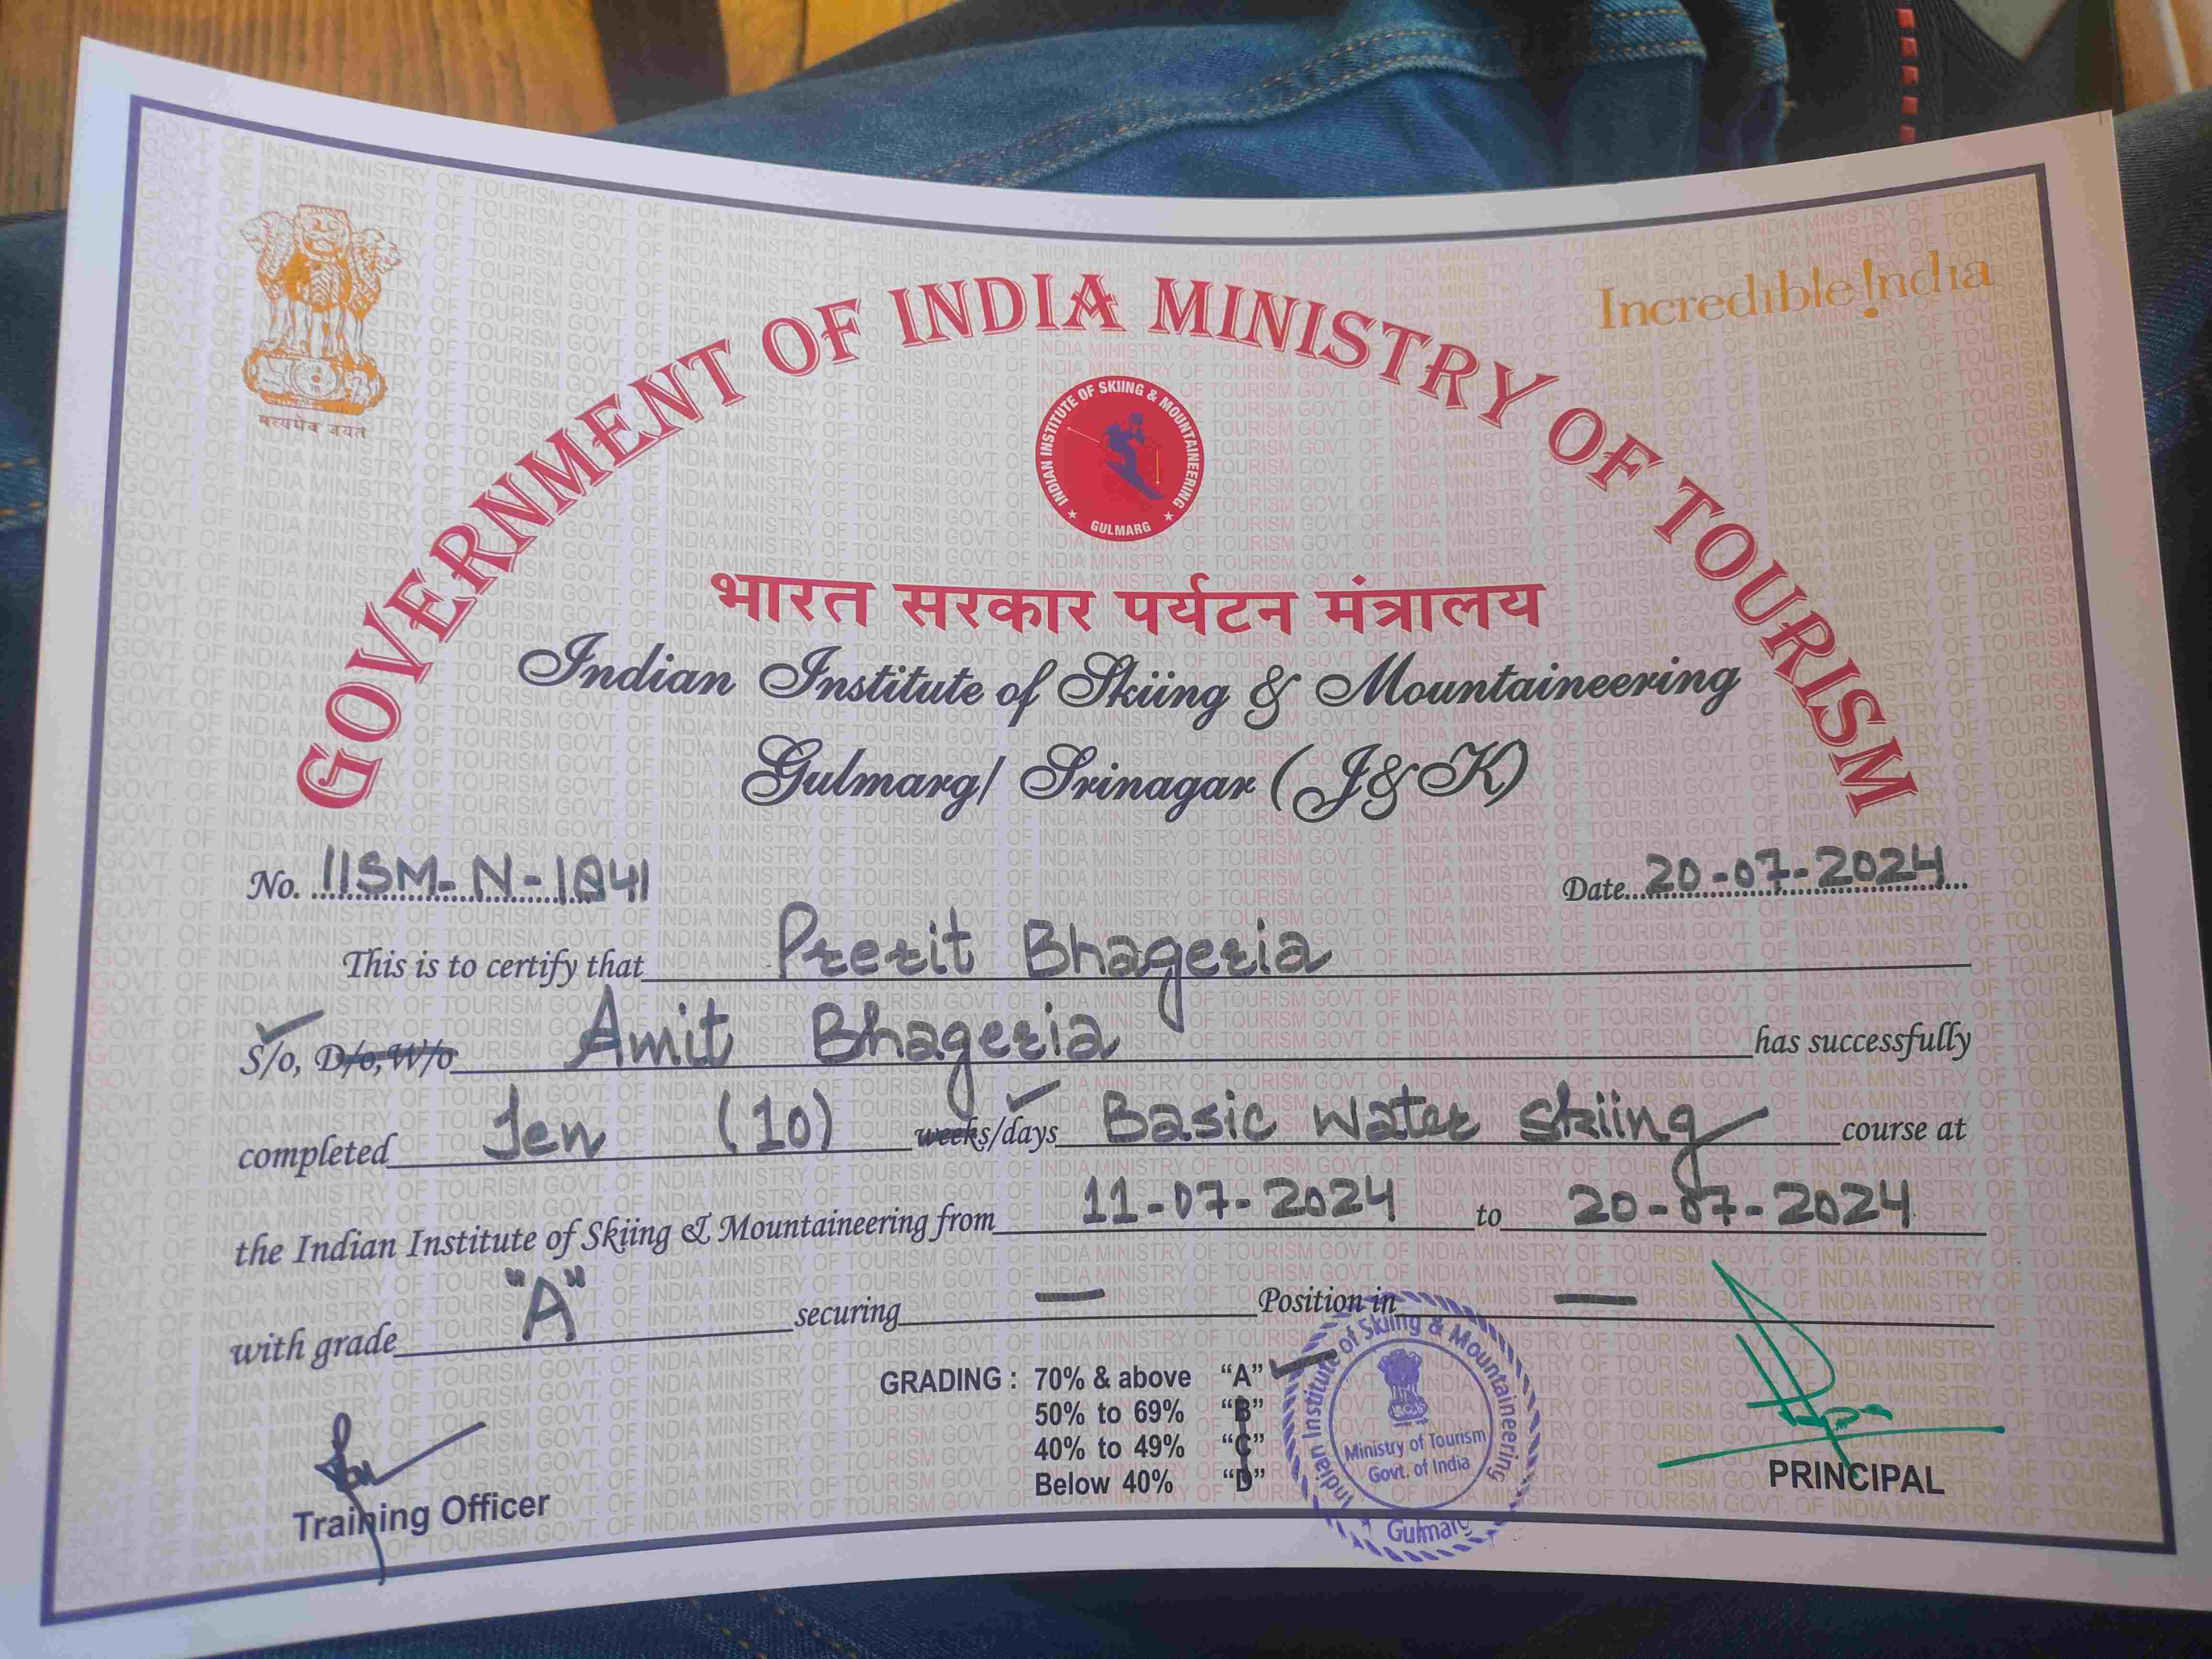 सत्यमेव जयते
Incredible!ndia
GOVERNMENT OF INDIA MINISTRY OF TOURISM
INDIAN INSTITUTE OF SKIING & MOUNTAINEERING
GULMARG
भारत सरकार पर्यटन मंत्रालय
Indian Institute of Skiing & Mountaineering
Gulmarg/ Srinagar (J&K)
No. IISM-N-1841 Date 20-07-2024
This is to certify that Prerit Bhageria
S/o, D/o, W/o Amit Bhageria has successfully
completed Ten (10) weeks/days Basic Water Skiing course at
the Indian Institute of Skiing & Mountaineering from 11-07-2024 to 20-07-2024
with grade "A" securing — Position in —
GRADING : 70% & above "A"
50% to 69% "B"
40% to 49% "C"
Below 40% "D"
Indian Institute of Skiing & Mountaineering
Ministry of Tourism
Govt. of India
Gulmarg
Training Officer
PRINCIPAL